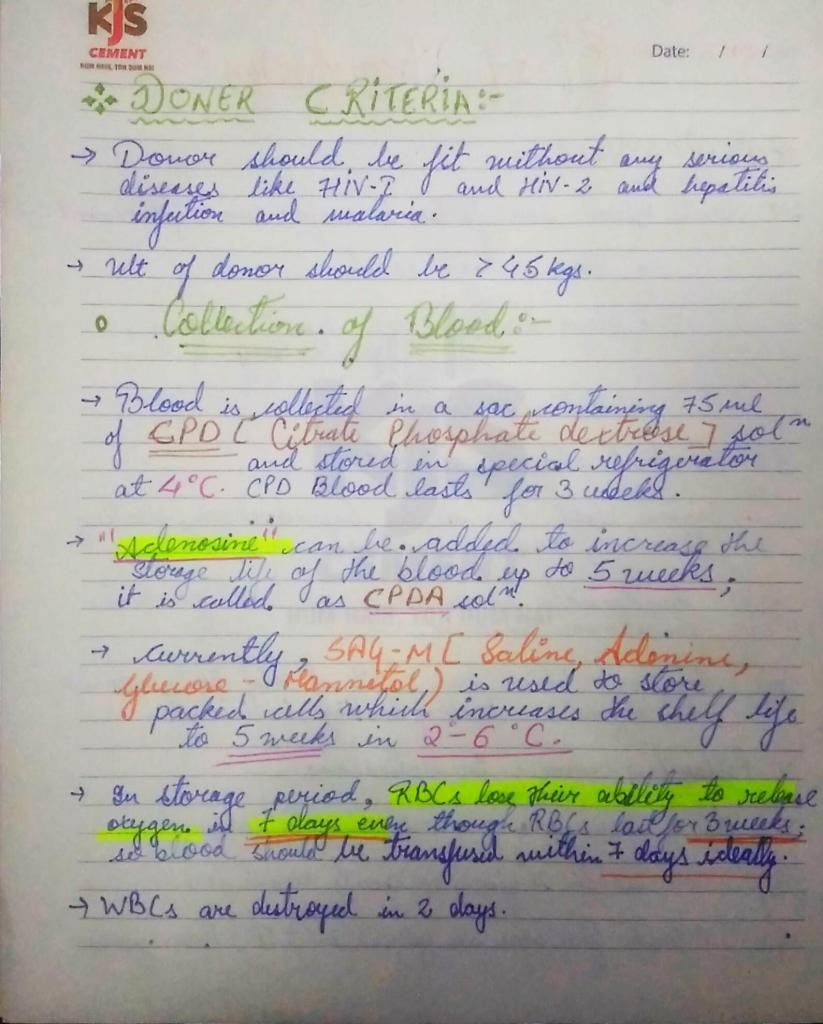 KJS
CEMENT
Date: / /
DONER CRITERIA:-
→ Donor should be fit without any serious
diseases like HIV-I and HIV-2 and hepatitis
infection and malaria.
→ Wt of donor should be >45kgs.
Collection of Blood:-
→ Blood is collected in a sac containing 75 ml
of CPD [Citrate Phosphate dextrose] solⁿ
and stored in special refrigerator
at 4°C. CPD Blood lasts for 3 weeks.
→ "Adenosine" can be added to increase the
storage life of the blood up to 5 weeks;
it is called as CPDA solⁿ.
→ Currently, SAG-M [Saline, Adenine,
Glucose - Mannetol) is used to store
packed cells which increases the shelf life
to 5 weeks in 2-6°C.
→ In storage period, RBCs lose their ability to release
oxygen in 7 days even though RBCs last for 3 weeks;
so blood should be transfused within 7 days ideally.
→ WBCs are destroyed in 2 days.